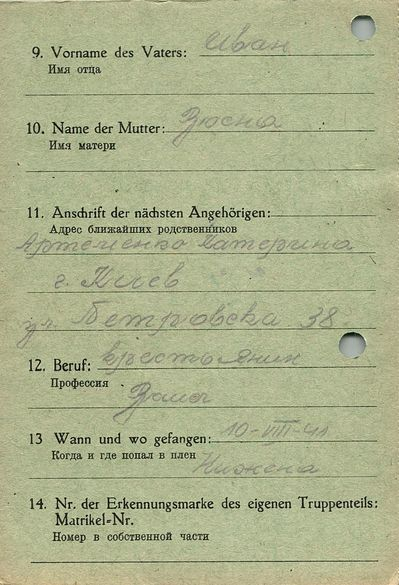 9. Vorname des Vaters: Иван
Имя отца
10. Name der Mutter:
Имя матери
11. Anschrift der nächsten Angehörigen:
Адрес ближайших родственников
Артеменко Катерина
г. Киев
ул. Петровска 38
12. Beruf: крестьянин
Профессия
13 Wann und wo gefangen: 10-VIII-41
Когда и где попал в плен
14. Nr. der Erkennungsmarke des eigenen Truppenteils:
Matrikel-Nr.
Номер в собственной части